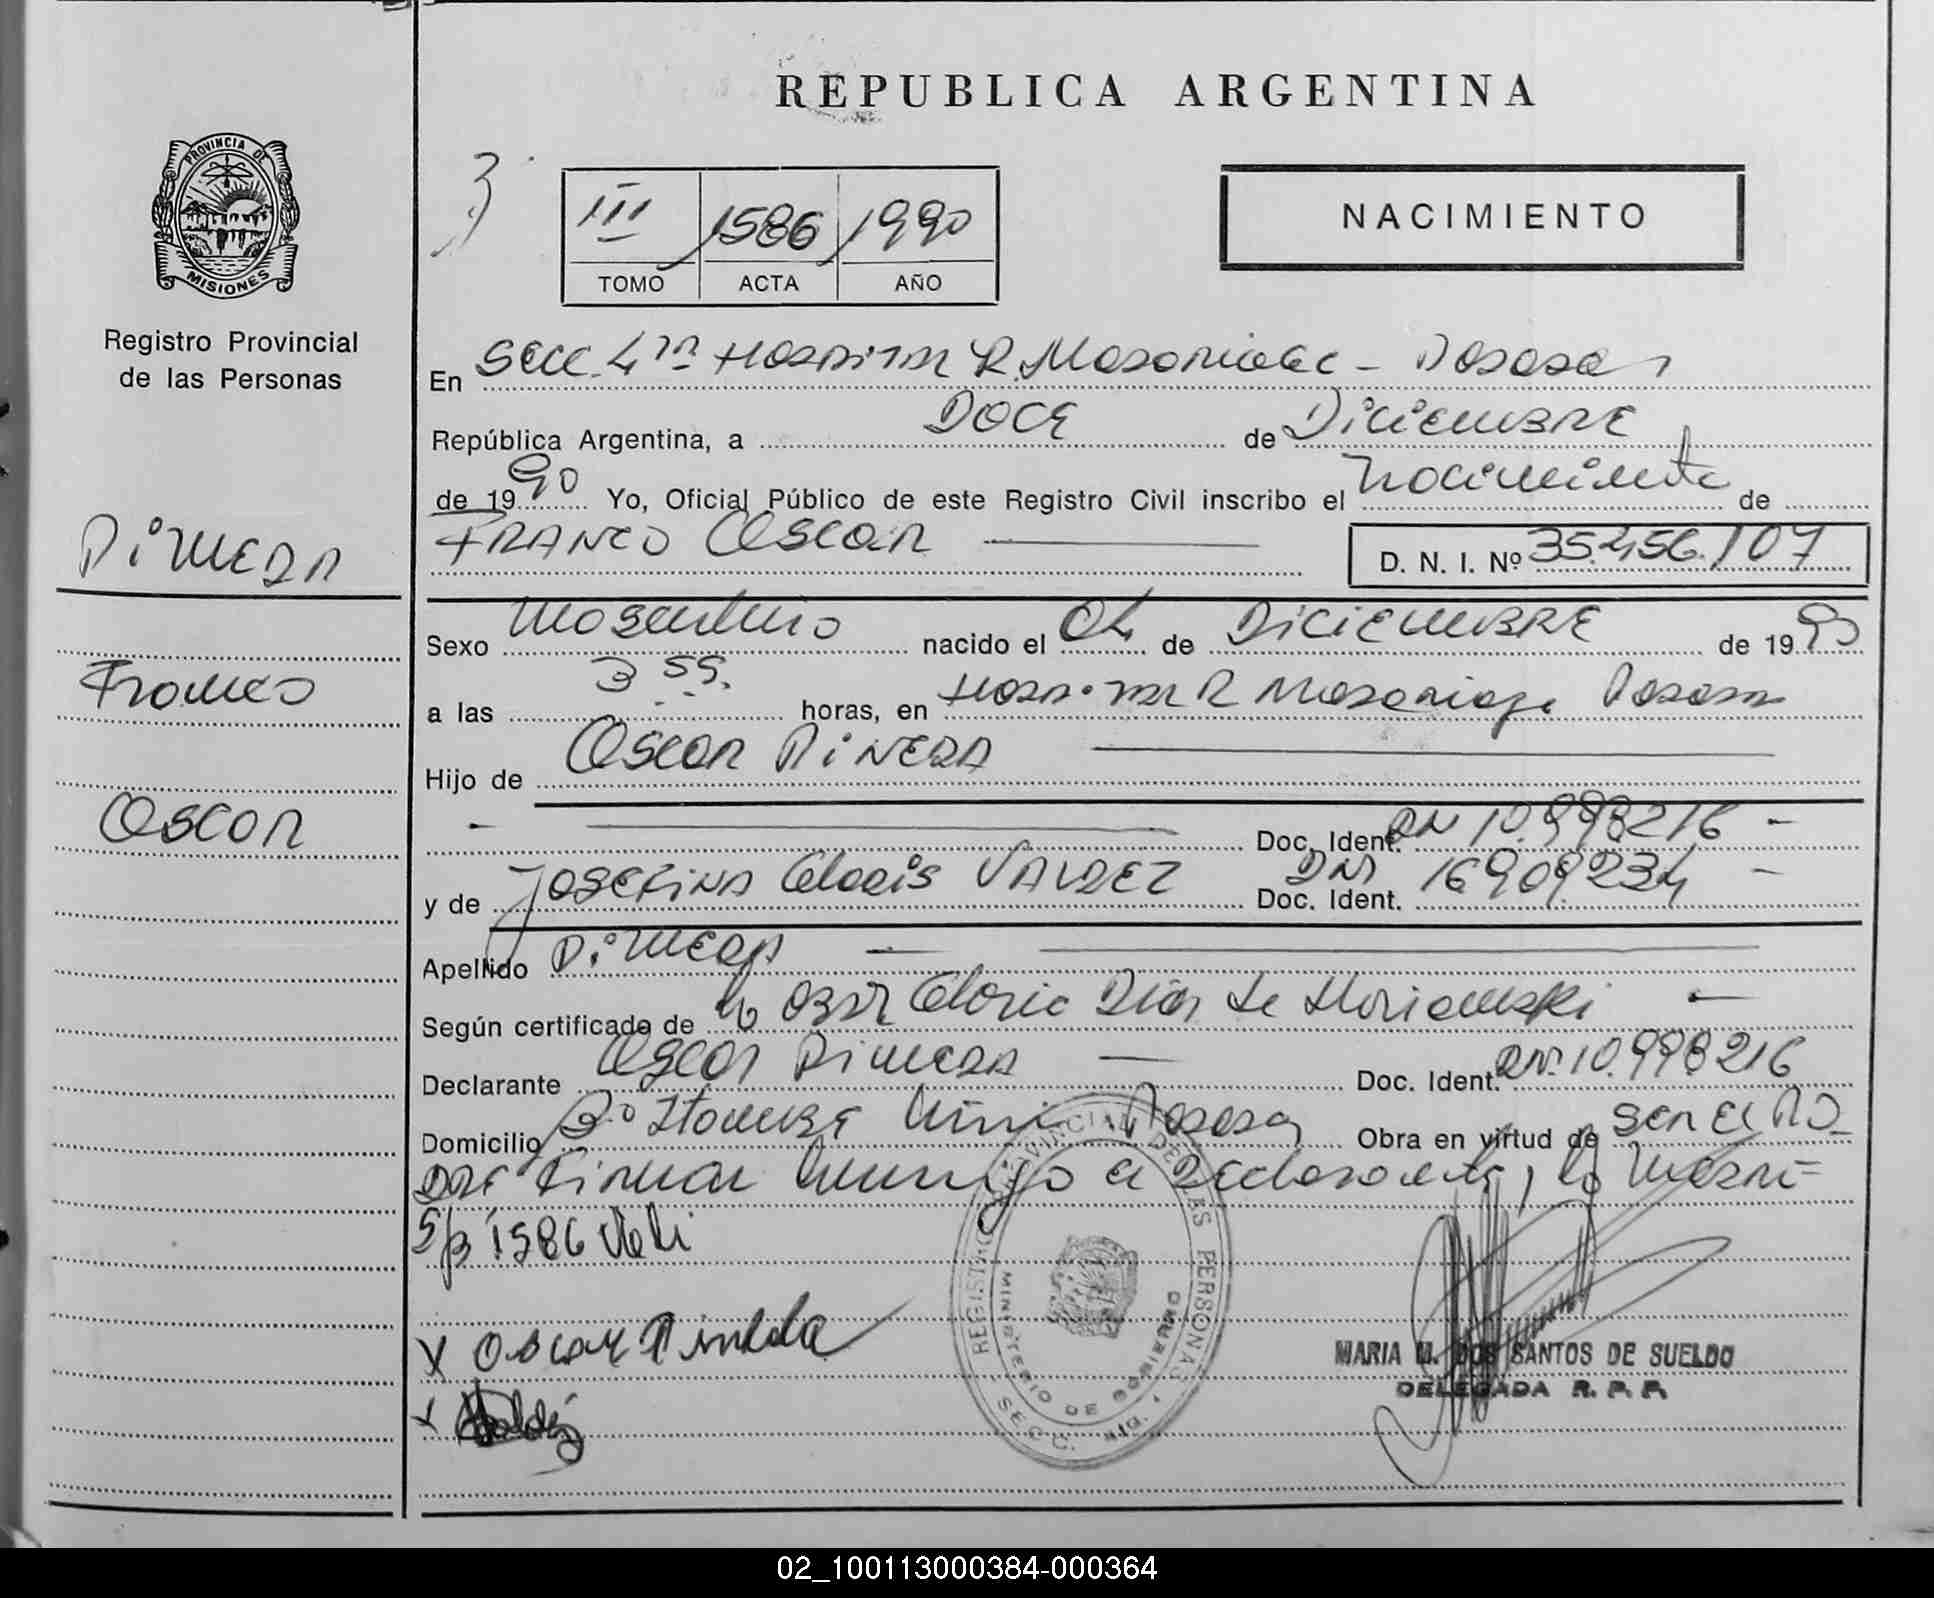 REPUBLICA ARGENTINA
PROVINCIA DE
MISIONES
Registro Provincial
de las Personas
3
III 1586 1990
TOMO ACTA AÑO
NACIMIENTO
En Secc. 4ta Hospital R. Madariaga - Posadas
República Argentina, a DOCE de Diciembre
de 1990 Yo, Oficial Público de este Registro Civil inscribo el nacimiento de
FRANCO OSCAR
D. N. I. Nº 35.456.107
Pineda
Franco
Oscar
Sexo Masculino nacido el 04 de Diciembre de 1990
a las 3 55. horas, en Hospital R Madariaga Posadas
Hijo de Oscar Pineda
Doc. Ident. DNI 10.998216 -
y de Josefina Gladis VALDEZ Doc. Ident. DNI 16909234 -
Apellido Pineda
Según certificado de la Obst Gloria Díaz de
Declarante Oscar Pineda Doc. Ident. DNI. 10.998216
Domicilio Bº Posadas Obra en virtud de ser el pa-
dre Firman conmigo el declarante, la madre
S/B 1586 Vale
X Oscar Pineda
X
REGISTRO PROVINCIAL DE LAS PERSONAS
MINISTERIO DE GOBIERNO
SECC. 4ta.
MARIA M. DOS SANTOS DE SUELDO
DELEGADA R. P. P.
02_100113000384-000364